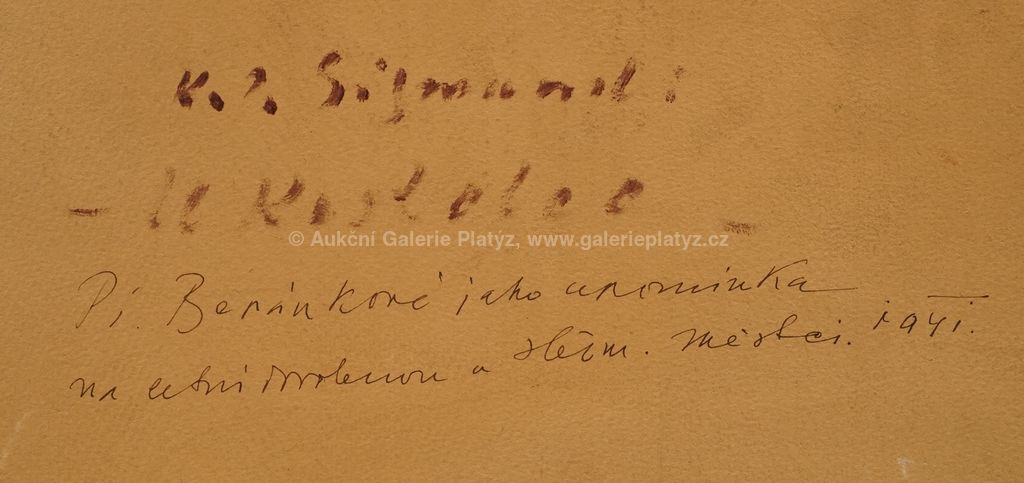 K. J. Sigmund :
- U Kostelce -
© Aukční Galerie Platýz, www.galerieplatyz.cz
Pí. Beránkové jako upomínka
na letní dovolenou v našem. městci. 1941.